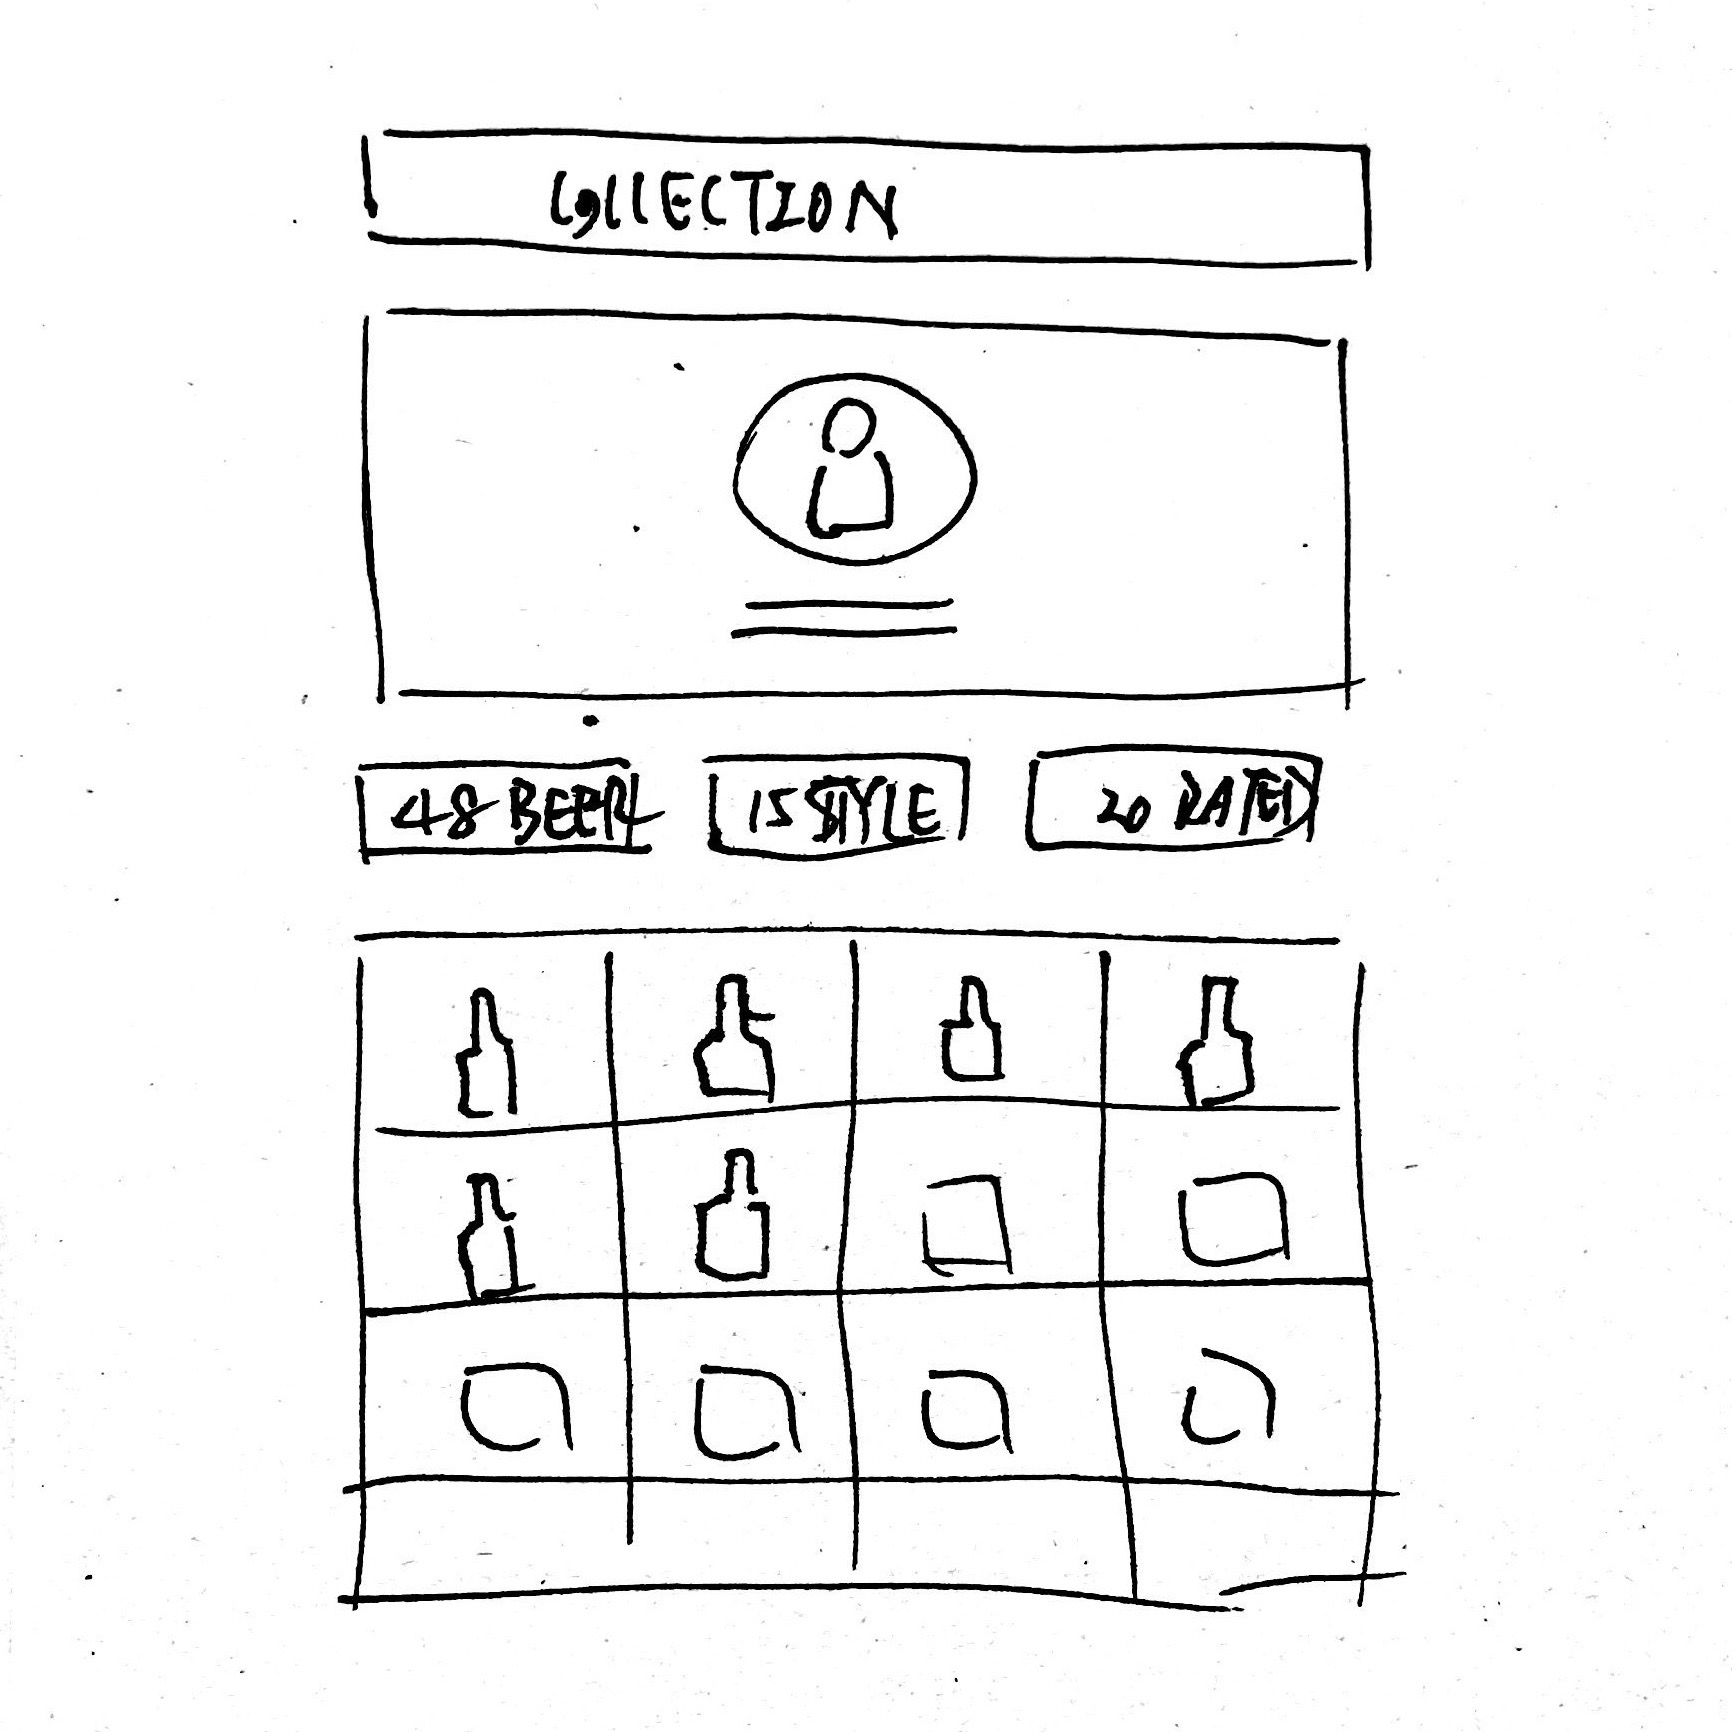 COLLECTION
48 BEER
15 STYLE
20 RATED